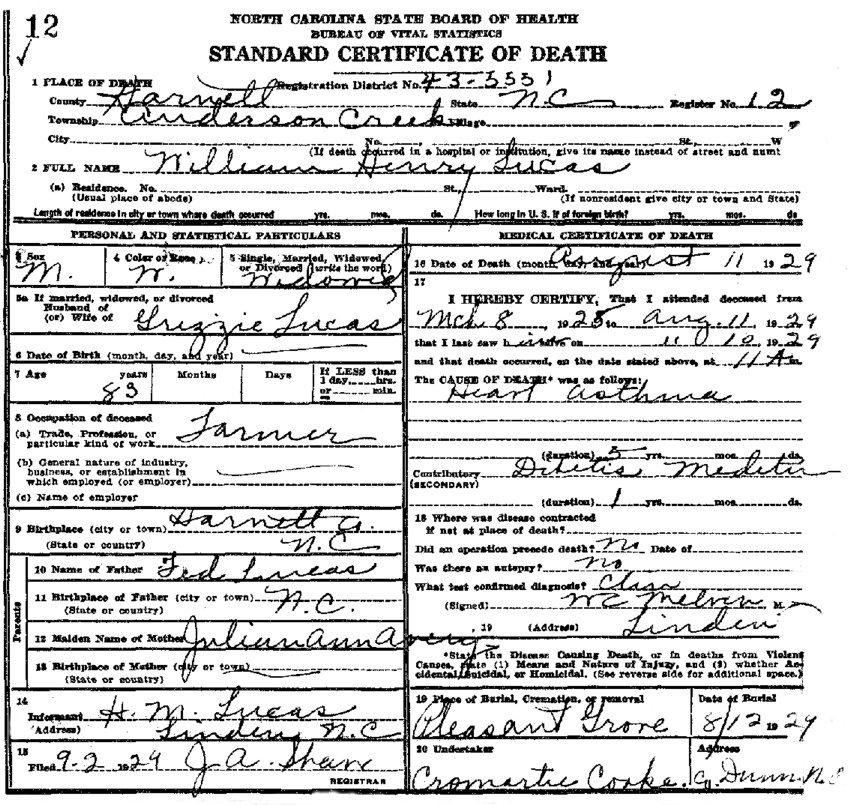 12
NORTH CAROLINA STATE BOARD OF HEALTH
BUREAU OF VITAL STATISTICS
STANDARD CERTIFICATE OF DEATH
1 PLACE OF DEATH Registration District No. 43-5551
County Harnett State N.C. Register No. 12
Township Anderson Creek Village
City No. St., W
(If death occurred in a hospital or institution, give its name instead of street and numt
2 FULL NAME William Henry Lucas
(a) Residence. No. St., Ward.
(Usual place of abode) (If nonresident give city or town and State)
Length of residence in city or town where death occurred yrs. mos. ds. How long in U. S. if of foreign birth? yrs. mos. ds
PERSONAL AND STATISTICAL PARTICULARS
3 Sex 4 Color or Race 5 Single, Married, Widowed, or Divorced (write the word)
M. W. Widowed
5a If married, widowed, or divorced
Husband of
(or) Wife of Grizzie Lucas
6 Date of Birth (month, day, and year)
7 Age years Months Days If LESS than
1 day, hrs.
or min.
83
8 Occupation of deceased
(a) Trade, Profession, or
particular kind of work Farmer
(b) General nature of industry,
business, or establishment in
which employed (or employer)
(c) Name of employer
9 Birthplace (city or town) Harnett Co.
(State or country) N.C
Parents
10 Name of Father Fed Lucas
11 Birthplace of Father (city or town)
(State or country) N.C.
12 Maiden Name of Mother Julian Ann Avery
13 Birthplace of Mother (city or town)
(State or country)
14
Informant H. M. Lucas
(Address) Linden N.C
15
Filed 9-2 1929 J.A. Shaw
REGISTRAR
MEDICAL CERTIFICATE OF DEATH
16 Date of Death (month, day, and year) August 11 1929
17
I HEREBY CERTIFY, That I attended deceased from
Mch 8, 1925 to Aug. 11, 1929
that I last saw h on 1929
and that death occurred, on the date stated above, at 11 A m.
The CAUSE OF DEATH* was as follows:
Heart asthma
(duration) 5 yrs. mos. ds.
Contributory Dibetis
(SECONDARY)
(duration) 1 yrs. mos. ds.
18 Where was disease contracted
if not at place of death?
Did an operation precede death? no Date of
Was there an autopsy? no
What test confirmed diagnosis?
(Signed) WC Melvin M.
, 19 (Address) Linden
*State the Disease Causing Death, or in deaths from Violent
Causes, state (1) Means and Nature of Injury, and (2) whether Ac-
cidental, Suicidal, or Homicidal. (See reverse side for additional space.)
19 Place of Burial, Cremation, or removal Date of Burial
Pleasant Grove 8/12 1929
20 Undertaker Address
Cromartie Cooke. Co Dunn N.C